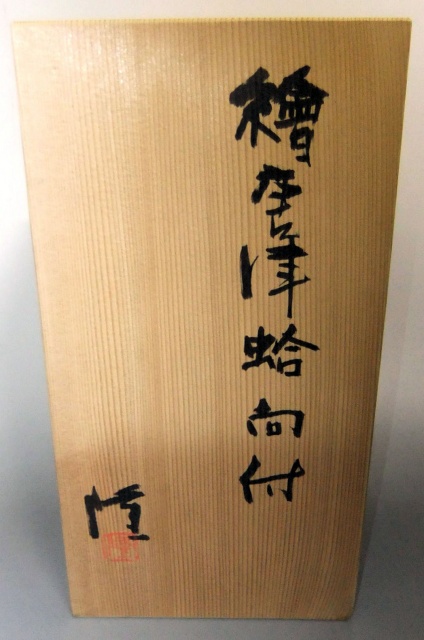 繪唐津蛤向付
陸